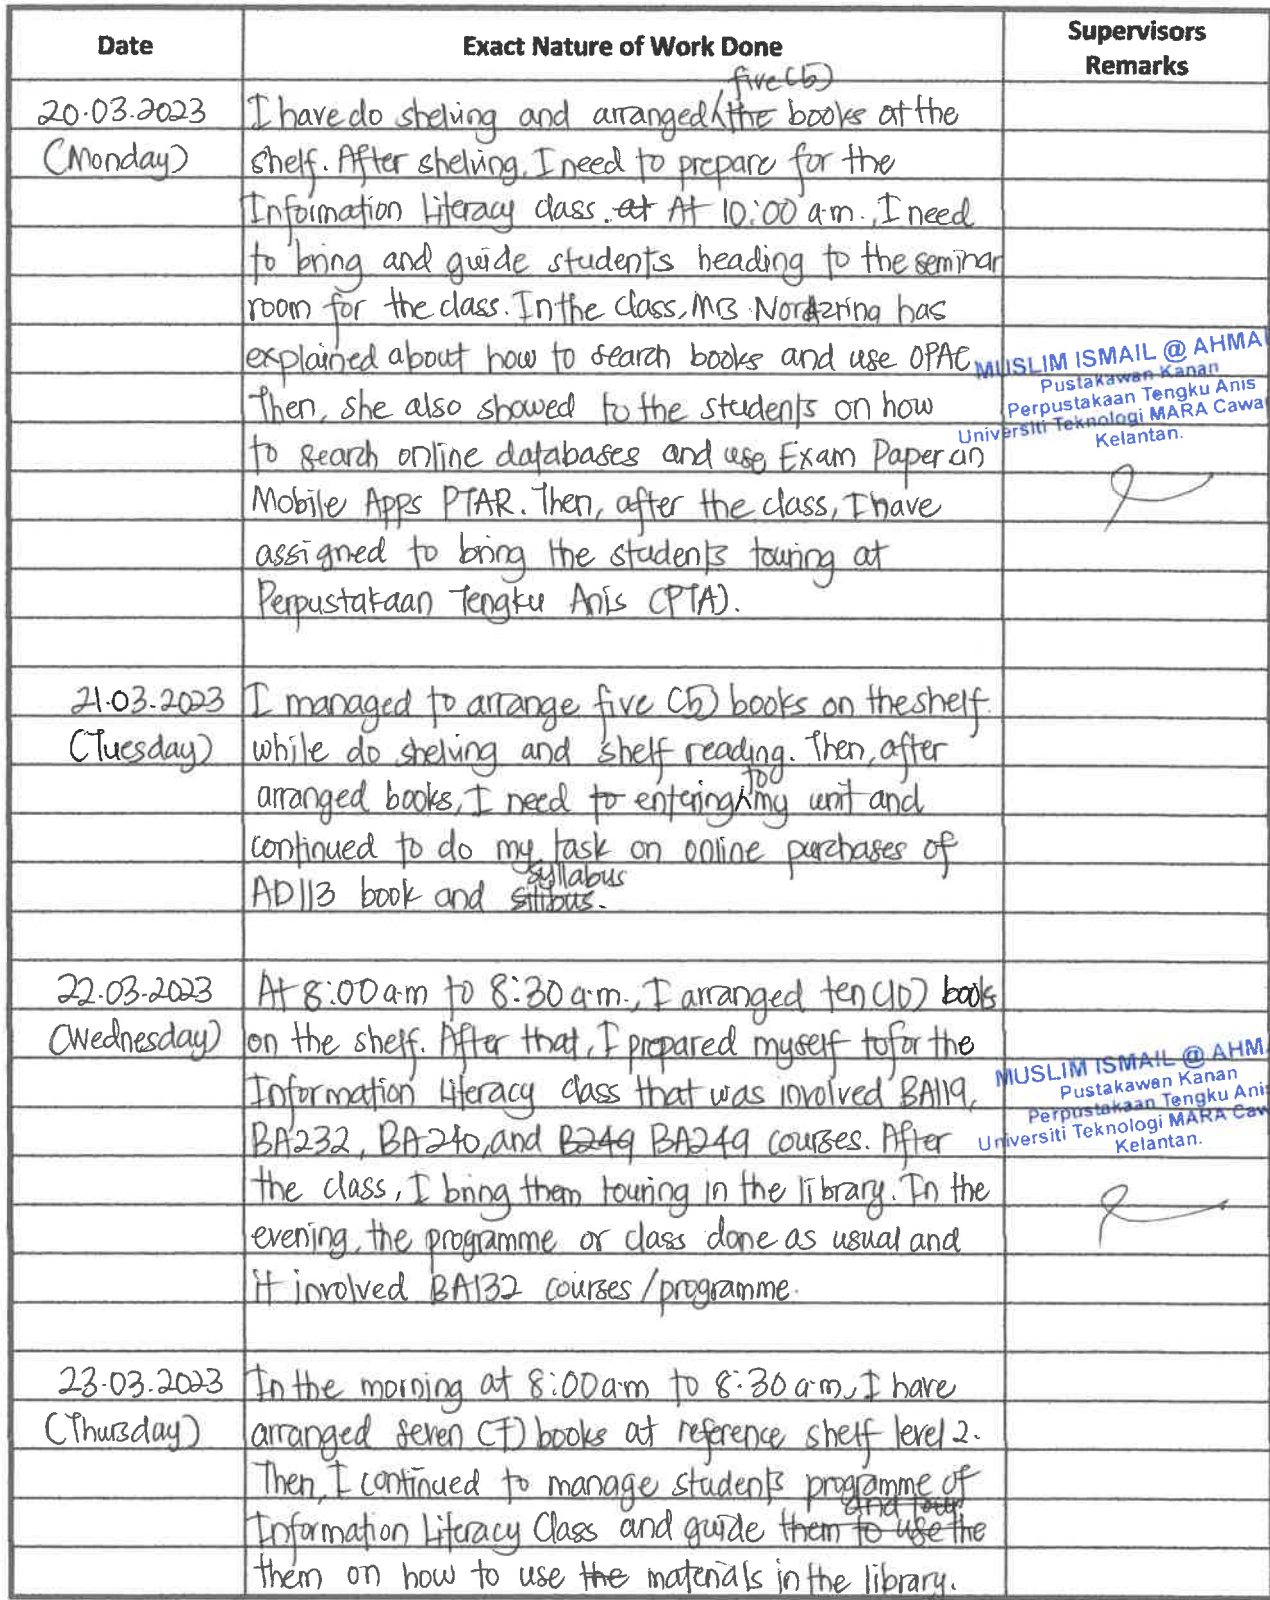 Date Exact Nature of Work Done Supervisors Remarks
five (5)
20.03.2023 I have do shelving and arranged the books at the
(Monday) shelf. After shelving, I need to prepare for the
Information Literacy class. at At 10:00 a.m., I need
to bring and guide students heading to the seminar
room for the class. In the class, Mrs Norazring has
explained about how to search books and use OPAC
Then, she also showed to the students on how
to search online databases and use Exam Paper on
Mobile Apps PTAR. Then, after the class, I have
assigned to bring the students touring at
Perpustakaan Tengku Anis (PTA).
MUSLIM ISMAIL @ AHMA
Pustakawan Kanan
Perpustakaan Tengku Anis
Universiti Teknologi MARA Cawa
Kelantan.
21.03.2023 I managed to arrange five (5) books on the shelf
(Tuesday) while do shelving and shelf reading. Then, after
to
arranged books, I need to entering my unit and
continued to do my task on online purchases of
syllabus
AD113 book and silibus.
22.03.2023 At 8:00 a.m to 8:30 a.m., I arranged ten (10) books
(Wednesday) on the shelf. After that, I prepared myself tofor the
Information Literacy class that was involved BA119,
BA232, BA240, and B249 BA249 courses. After
the class, I bring them touring in the library. In the
evening, the programme or class done as usual and
it involved BA132 courses/programme.
MUSLIM ISMAIL @ AHM
Pustakawan Kanan
Perpustakaan Tengku Anis
Universiti Teknologi MARA Caw
Kelantan.
23.03.2023 In the morning at 8:00 a.m to 8:30 a.m, I have
(Thursday) arranged seven (7) books at reference shelf level 2.
Then, I continued to manage students programme of
and tour
Information Literacy Class and guide them to use the
them on how to use the materials in the library.